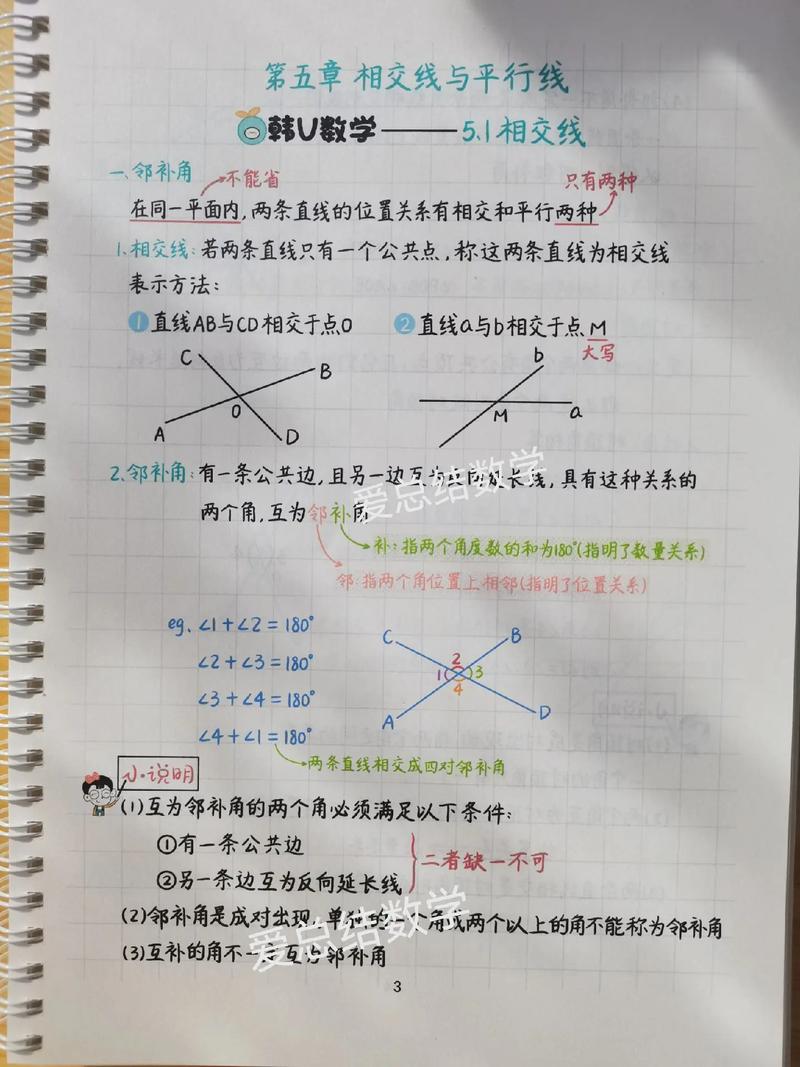 第五章 相交线与平行线
韩U数学——5.1相交线
一、邻补角
不能省
只有两种
在同一平面内,两条直线的位置关系有相交和平行两种
1.相交线:若两条直线只有一个公共点,称这两条直线为相交线
表示方法:
①直线AB与CD相交于点O ②直线a与b相交于点M
大写
C B O A D
b M a
2.邻补角:有一条公共边,且另一边互为反向延长线,具有这种关系的
两个角,互为邻补角
爱总结数学
补:指两个角度数的和为180°(指明了数量关系)
邻:指两个角位置上相邻(指明了位置关系)
eg. ∠1+∠2=180°
∠2+∠3=180°
∠3+∠4=180°
∠4+∠1=180°
C B 2 1 3 4 A D
两条直线相交成四对邻补角
小说明
(1)互为邻补角的两个角必须满足以下条件:
①有一条公共边
②另一条边互为反向延长线
二者缺一不可
(2)邻补角是成对出现,单独的一个角或两个以上的角不能称为邻补角
(3)互补的角不一定互为邻补角
爱总结数学
3